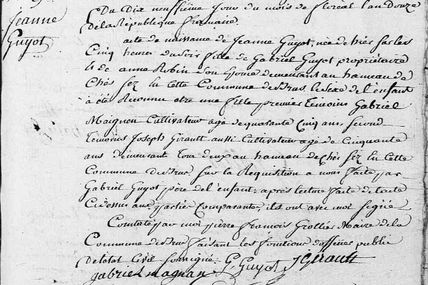 Jeanne
Guyot
Du Dix neuffieme Jour du mois de floreal l'an Douze
de la Republique francaise
acte de naissance de Jeanne Guyot, née de hier sur les
Cinq heures du Soir fille de Gabriel Guyot propriétaire
& de anne Robin son Epouse demeurant au hameau de
chés fez la cotte Commune de le Sexe de l'enfant
à été Reconnu etre une fille premier temoins Gabriel
Maignon Cultivateur agé de quarante Cinq ans Second
temoins Joseph Girault aussi Cultivateur agé de Cinquante
ans demeurant tou deux au hameau de chés fez la cotte
Commune de sur la Requisition a nous faite par
Gabriel Guyot père de l'enfant : après lecture faite de tarte
Cidessus aux partie Comparante, ils ont avec moi Signé
Constaté par moi pierre francois Maire de la
Commune de faisant les fonctions d'officier public
de letat Civil Soussigné
gabriel magnan G. Guyot J Girault